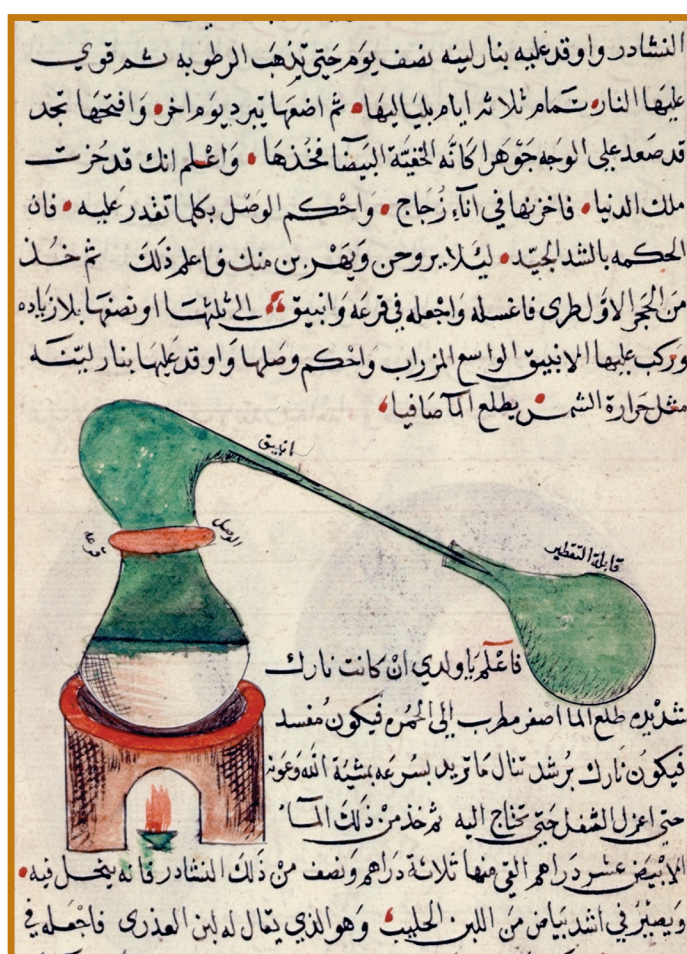 النشادر واوقد عليه بنار لينه نصف يوم حتى تذهب الرطوبه ثم قوي
عليها النار تمام ثلاثه ايام بلياليها ثم اضعها تبرد يوم اخر وافتحها تجد
قد صعد على الوجه جوهرا كانه الخفيّة البيضا فخذها واعلم انك قد حزت
ملك الدنيا فاخزنها في اناء زجاج واحكم الوصل بكلما تقدر عليه فان
الحكمه بالشد الجيّد ليئلا يروحن ويهربن منك فاعلم ذلك ثم خذ
من الحجر الاول طرى فاغسله واجعله في قرعه وانبيق الى ثلثها او نصفها بلا زياده
وركب عليها الانبيق الواسع المزراب واحكم وصلها واوقد عليها بنار ليّنه
مثل حرارة الشمس يطلع الما صافيا
انبيق
الوصل
قرعه
قابلة التقطير
فاعلم يا ولدي ان كانت نارك
شديده طلع الما اصفر مطرب إلى الحمره فيكون مفسد
فيكون نارك برشد تنال ما تريد بسرعه بمشيّة الله وعونه
حتى اعزل الثفل حتى تحتاج اليه ثم خذ من ذلك الماء
الابيض عشر دراهم القي منها ثلاثة دراهم ونصف من ذلك النشادر فانه ينحل فيه
ويصير في اشد بياض من اللبن الحليب وهو الذي يقال له لبن العذرى فاجعله في